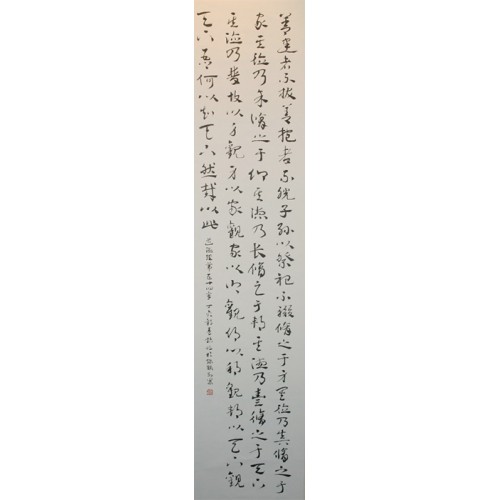 善建者不拔善抱者不脱子孫以祭祀不輟脩之于身其德乃真脩之于
家其德乃餘脩之于鄉其德乃長脩之于邦其德乃豐脩之于天下
其德乃普故以身觀身以家觀家以鄉觀鄉以邦觀邦以天下觀
天下吾何以知天下然哉以此
道德經第五十四章